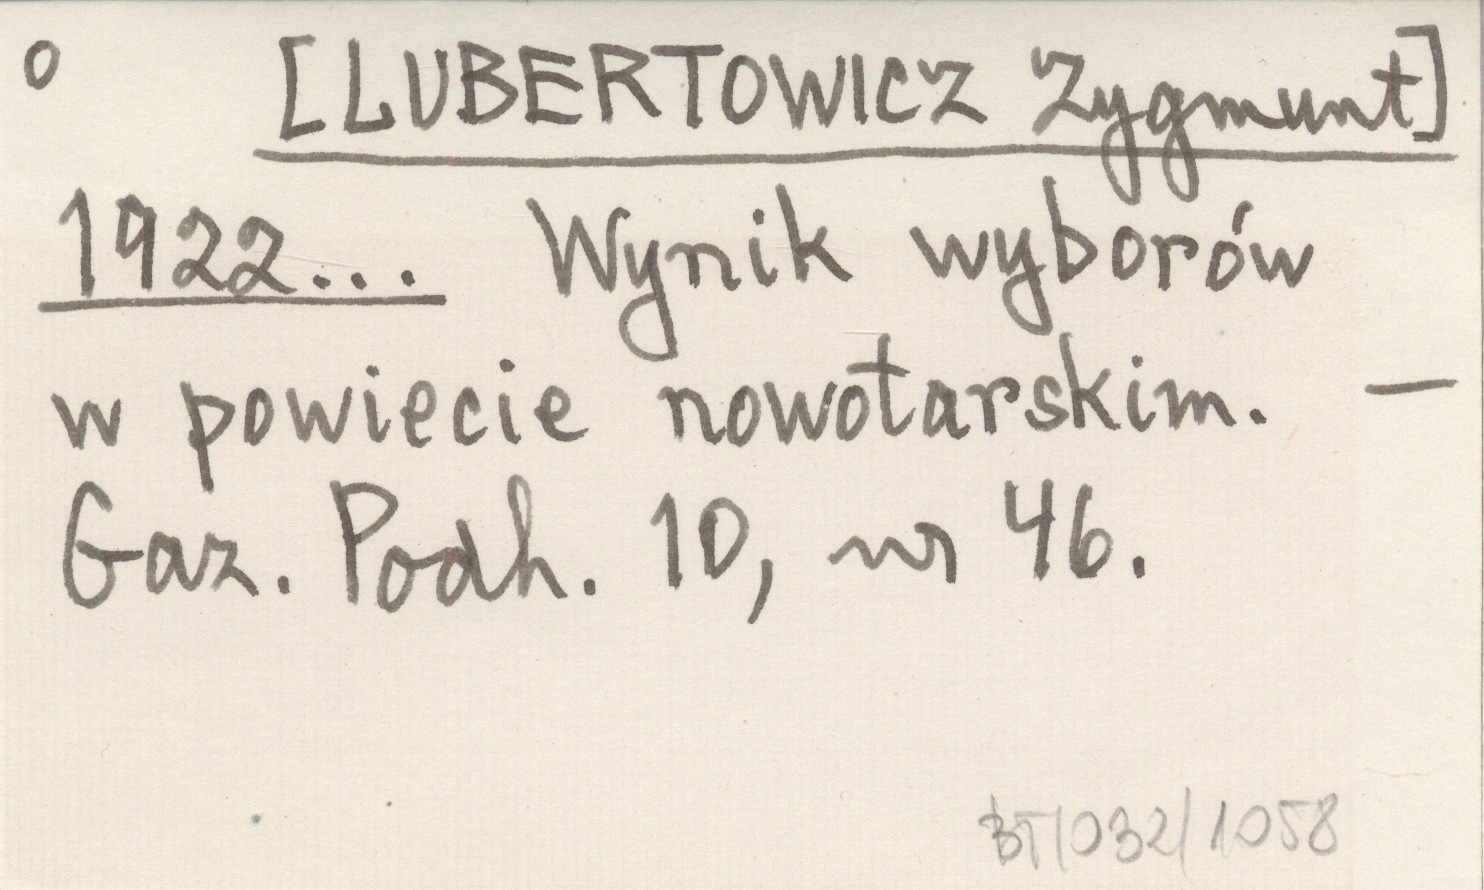 o [LUBERTOWICZ Zygmunt]
1922... Wynik wyborów
w powiecie nowotarskim. —
Gaz. Podh. 10, nr 46.
BT/032/1058